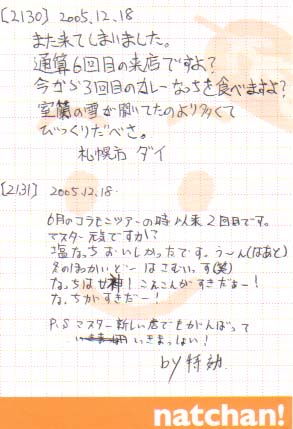 [2130] 2005.12.18
また来てしまいました。
通算6回目の来店ですよ?
今から3回目のカレーなっちを食べますよ?
室蘭の雪が聞いてたのより多くて
びっくりだべさ。
札幌市 ダイ
[2131] 2005.12.18.
6月のコラモニツアーの時以来2回目です。
マスター元気ですか?
塩なっちおいしかったです。う〜ん(はあと)
冬のほっかいどーはさむいっす(笑)
なっちは神! こえこんがすきだぁー!
なっちがすきだー!
P.S マスター新しい店でもがんばって
いきまっしょい!
by 特効
natchan!